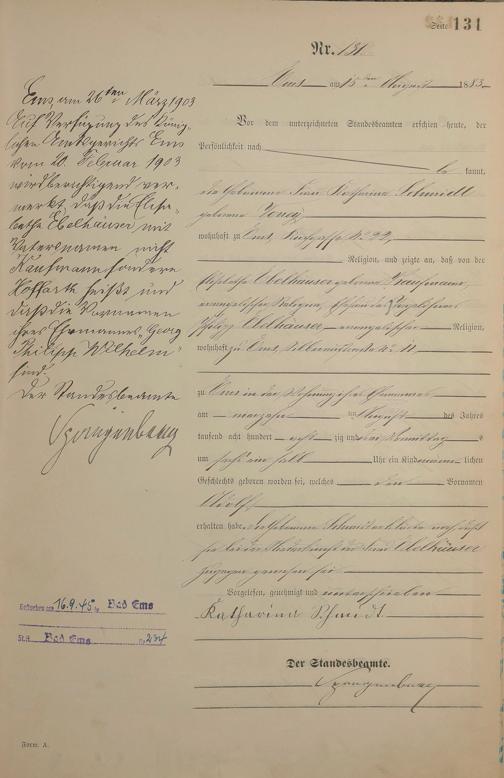 Seite 131
Nr. 131.
Ems am 15ten August 1883.
Vor dem unterzeichneten Standesbeamten erschien heute, der
Persönlichkeit nach
be kannt,
die Hebamme Frau Katharina Schmidt
geborene
wohnhaft zu Ems,
Religion, und zeigte an, daß von der
Elisabetha Ebelhäuser geborene Kaufmann,
evangelischer Religion, Ehefrau des
Philipp Ebelhäuser, evangelischer Religion,
wohnhaft zu Ems,
zu Ems in der Wohnung ihres Ehemannes
am vierzehn ten August des Jahres
tausend acht hundert acht zig und drei Vormittag s
um Uhr ein Kind männ lichen
Geschlechts geboren worden sei, welches den Vornamen
Adolf
erhalten habe. Die Hebamme Schmidt erklärte
sie bei der Niederkunft der Frau Ebelhäuser
zugegen gewesen sei.
Vorgelesen, genehmigt und unterschrieben
Katharina Schmidt
Der Standesbeamte.
Spangenberg
Ems, am 26ten März 1903
Auf Verfügung des König-
lichen Amtsgerichts Ems
vom 20. Februar 1903
wird berichtigend ver-
merkt, daß die Elisa-
betha Ebelhäuser mit
Vatersnamen nicht
Kaufmann sondern
Hoffarth heißt und
daß die Vornamen
ihres Ehemannes, Georg
Philipp Wilhelm
sind.
Der Standesbeamte
Spangenberg
Gestorben am 16.9.45 in Bad Ems
St.A. Bad Ems Nr. 234
Form. A.